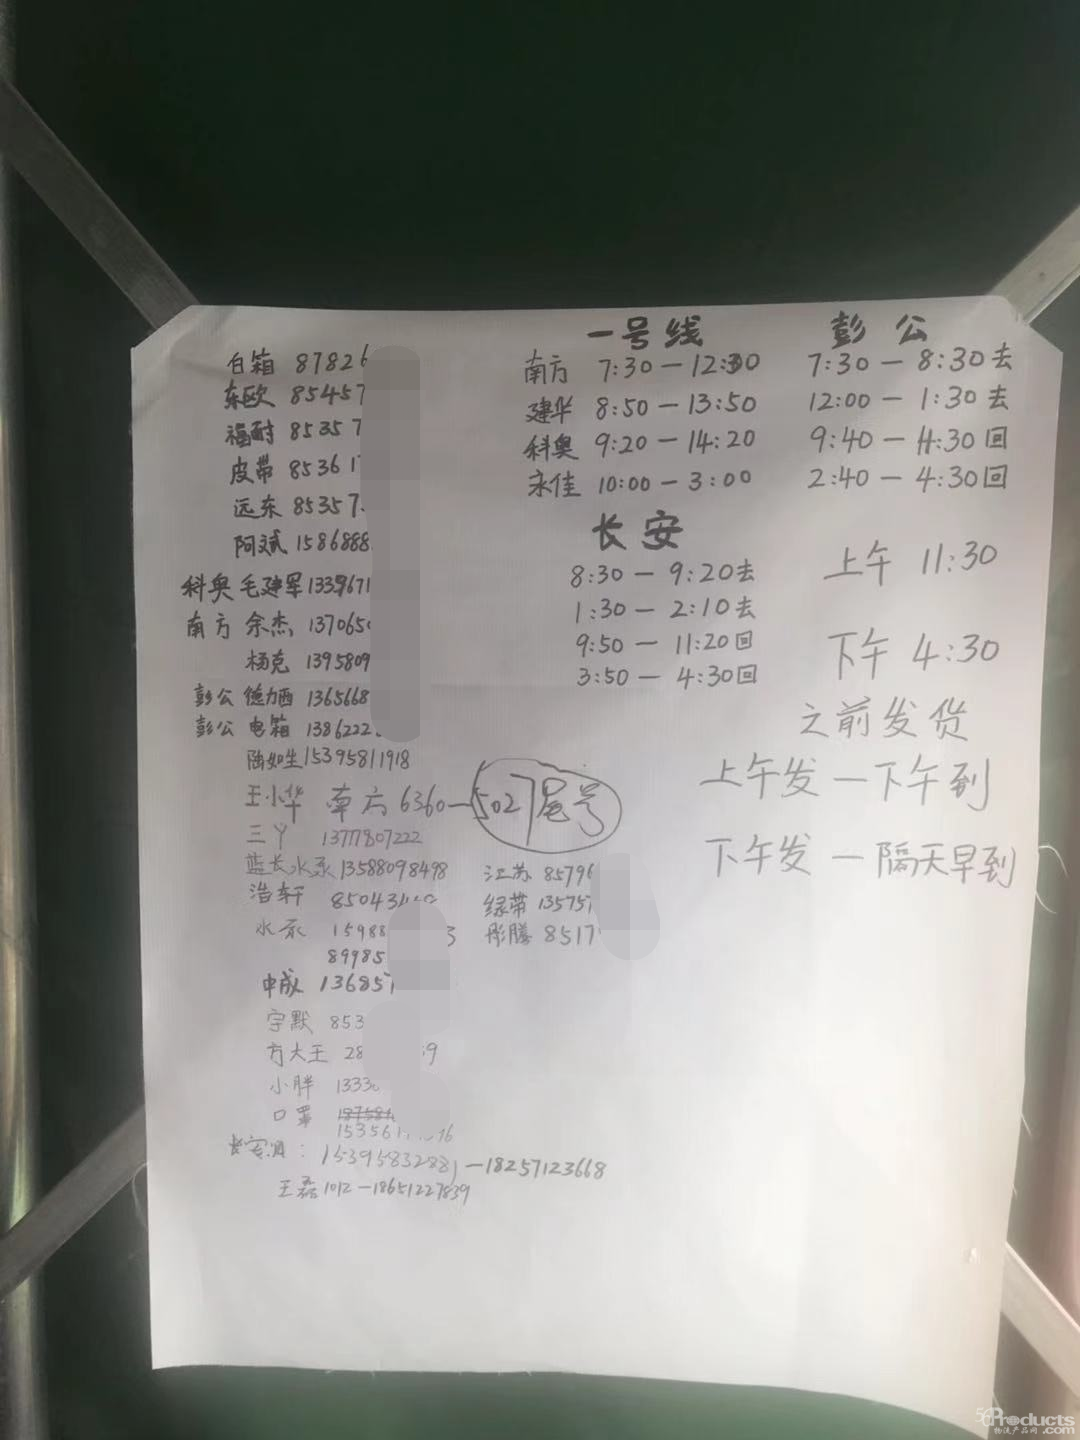 白箱 87826
东欧 85457
福耐 85357
皮带 85361
远东 85357
阿斌 1586888
科奥 毛建军
南方 余杰 1370650
杨克 1395809
彭公 德力西 1365668
彭公 电箱 1386222
陆如生 15395811918
王小华 南方 6360—5027尾号
三丫 13777807222
蓝长水泵 13588098498
浩轩 85043
水泵 15988 3
89985
申成 136857
宇默 853
方大王 28 39
小胖 1333
口罩
15356
长安 : 15395832881—18257123668
王磊 1012—18651227839
江苏 85796
绿带 13575
彤腾 8517
一号线
南方 7:30—12:30
建华 8:50—13:50
科奥 9:20—14:20
永佳 10:00—3:00
长安
8:30—9:20去
1:30—2:10去
9:50—11:20回
3:50—4:30回
彭公
7:30—8:30去
12:00—1:30去
9:40—11:30回
2:40—4:30回
上午 11:30
下午 4:30
之前发货
上午发—下午到
下午发—隔天早到
Products
物流产品网 .com